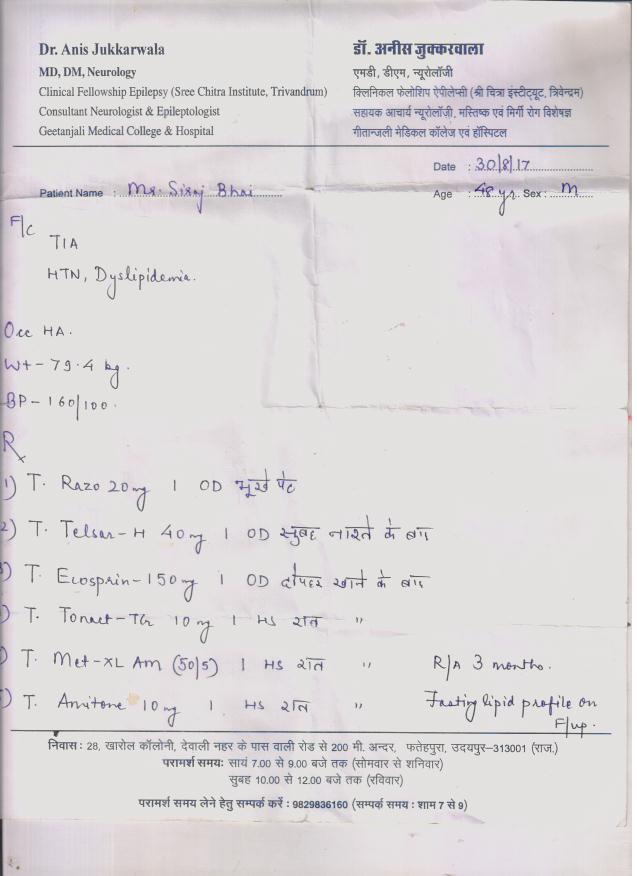 Dr. Anis Jukkarwala
MD, DM, Neurology
Clinical Fellowship Epilepsy (Sree Chitra Institute, Trivandrum)
Consultant Neurologist & Epileptologist
Geetanjali Medical College & Hospital
डॉ. अनीस जुक्करवाला
एमडी, डीएम, न्यूरोलॉजी
क्लिनिकल फेलोशिप ऐपीलेप्सी (श्री चित्रा इंस्टीट्यूट, त्रिवेन्द्रम)
सहायक आचार्य न्यूरोलॉजी, मस्तिष्क एवं मिर्गी रोग विशेषज्ञ
गीतान्जली मेडिकल कॉलेज एवं हॉस्पिटल
Date : 30/8/17
Patient Name : Mr. Siraj Bhai
Age : 48 yr Sex : M
F/C
TIA
HTN, Dyslipidemia.
Occ HA.
Wt - 79.4 kg.
BP - 160/100.
Rx
1) T. Razo 20mg 1 OD भूखे पेट
2) T. Telsar-H 40mg 1 OD सुबह नाश्ते के बाद
) T. Ecosprin-150mg 1 OD दोपहर खाने के बाद
) T. Tonact-TG 10mg 1 HS रात "
) T. Met-XL AM (50/5) 1 HS रात " R/A 3 months.
) T. Amitone 10mg 1 HS रात " Fasting lipid profile on
F/up.
निवास : 28, खारोल कॉलोनी, देवाली नहर के पास वाली रोड से 200 मी. अन्दर, फतेहपुरा, उदयपुर–313001 (राज.)
परामर्श समय: सायं 7.00 से 9.00 बजे तक (सोमवार से शनिवार)
सुबह 10.00 से 12.00 बजे तक (रविवार)
परामर्श समय लेने हेतु सम्पर्क करें : 9829836160 (सम्पर्क समय : शाम 7 से 9)